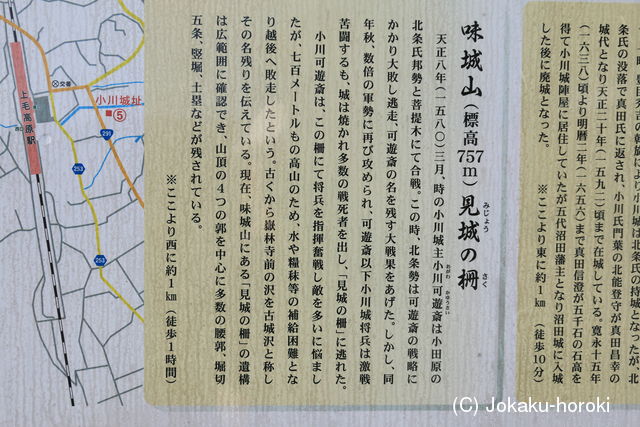 条氏の没落で真田氏に返され、小川氏門葉の北能登守が真田昌幸の
城代となり天正二十年（一五九二）頃まで在城している。寛永十五年
（一六三八）頃より明暦二年（一六五六）まで真田信澄が五千石の石高を
得て小川城陣屋に居住していたが五代沼田藩主となり沼田城に入城
した後に廃城となった。
※ここより東に約1㎞（徒歩10分）
味城山（標高757m）見城の柵
みじょう
さく
天正八年（一五八〇）三月、時の小川城主小川可遊斎は小田原の
おがわ
かゆうさい
北条氏邦勢と菩提木にて合戦。この時、北条勢は可遊斎の戦略に
かかり大敗し逃走、可遊斎の名を残す大戦果をあげた。しかし、同
年秋、数倍の軍勢に再び攻められ、可遊斎以下小川城将兵は激戦
苦闘するも、城は焼かれ多数の戦死者を出し、「見城の柵」に逃れた。
小川可遊斎は、この柵にて将兵を指揮奮戦し敵を多いに悩まし
たが、七百メートルもの高山のため、水や糧秣等の補給困難とな
り越後へ敗走したという。古くから嶽林寺前の沢を古城沢と称し
その名残りを伝えている。現在、味城山にある「見城の柵」の遺構
は広範囲に確認でき、山頂の4つの郭を中心に多数の腰郭、堀切
五条、竪堀、土塁などが残されている。
※ここより西に約1㎞（徒歩1時間）
交番
小川城址
⑤
上毛高原駅
291
253
253
(C) Jokaku-horoki